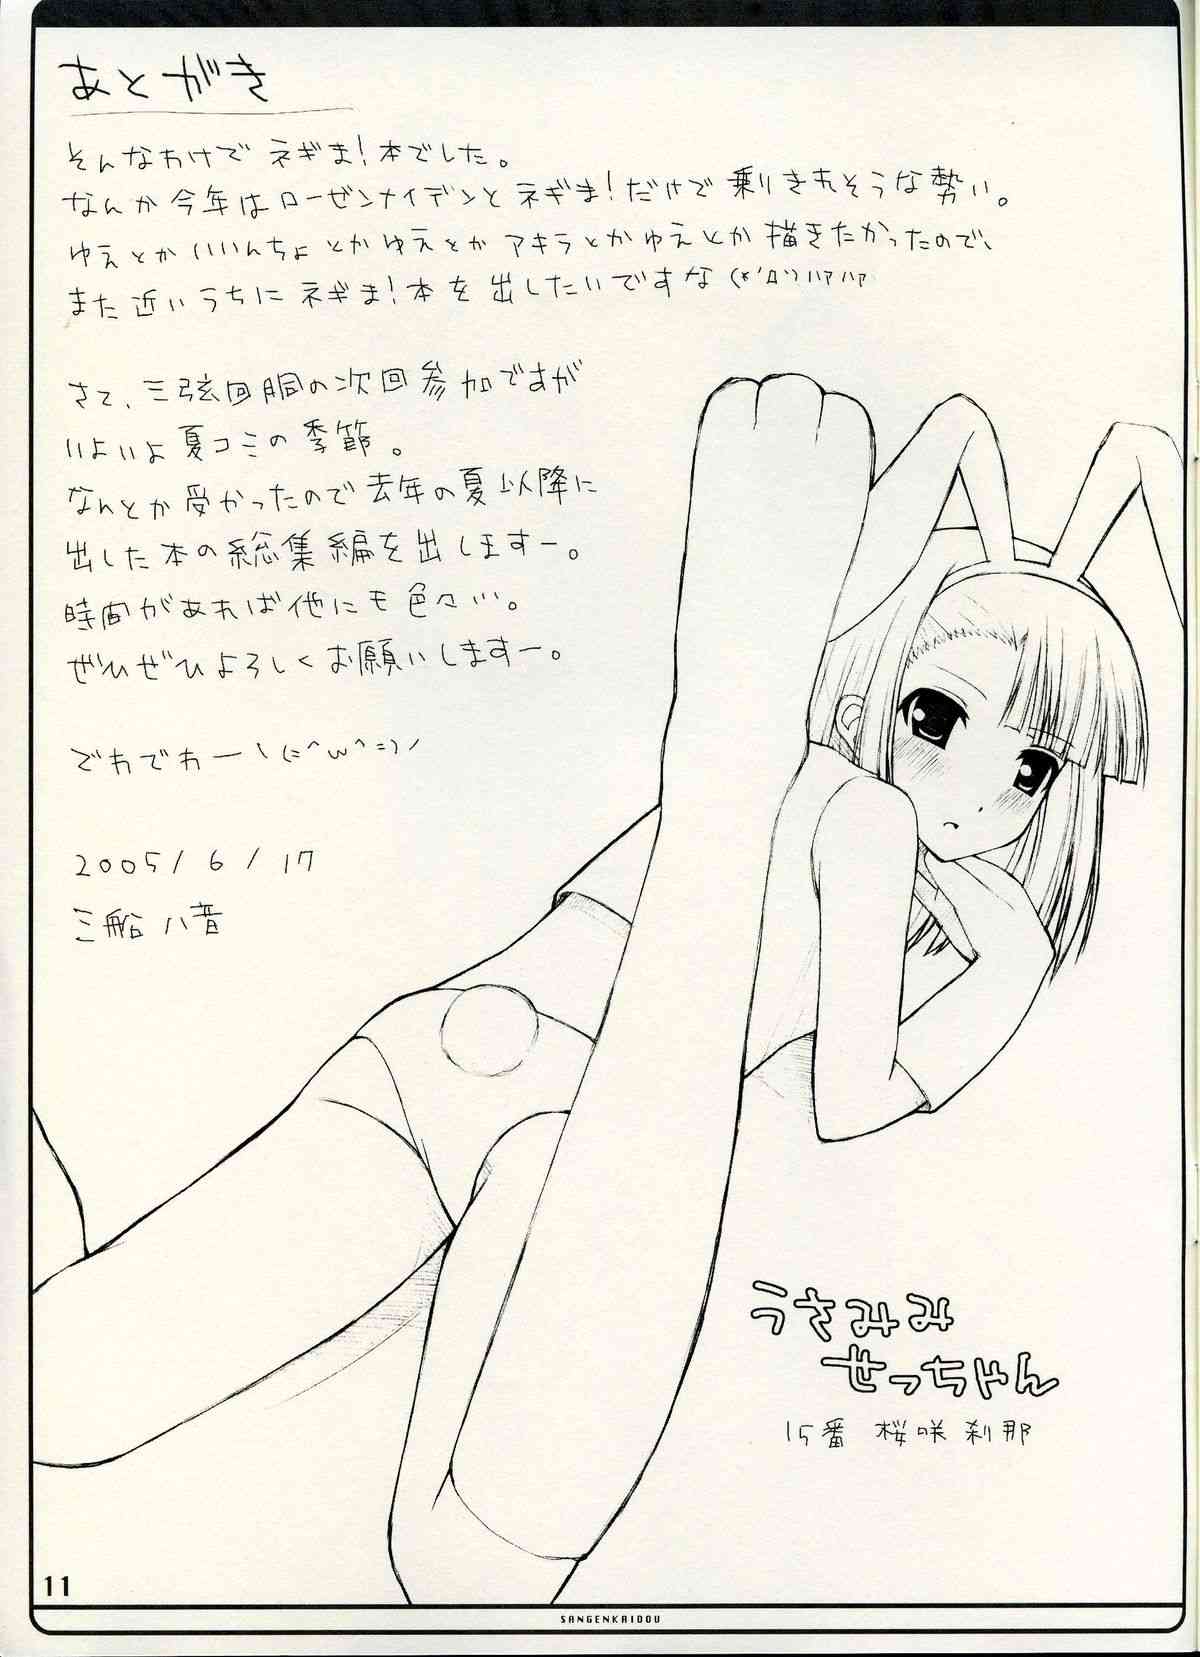 あとがき
そんなわけで ネギま!本でした。
なんか今年はローゼンメイデンとネギま!だけで乗りきれそうな勢い。
ゆえとかいいんちょとかゆえとかアキラとかゆえとか描きたかったので、
また近いうちにネギま!本を出したいですな(*´Д`)ハァハァ
さて、三弦回胴の次回参加ですが
いよいよ夏コミの季節。
なんとか受かったので去年の夏以降に
出した本の総集編を出しますー。
時間があれば他にも色々…。
ぜひぜひよろしくお願いしますー。
でわでわーヽ(=^w^=)ノ
2005/6/17
三船八音
うさみみ
せっちゃん
15番 桜咲刹那
11
SANGENKAIDOU